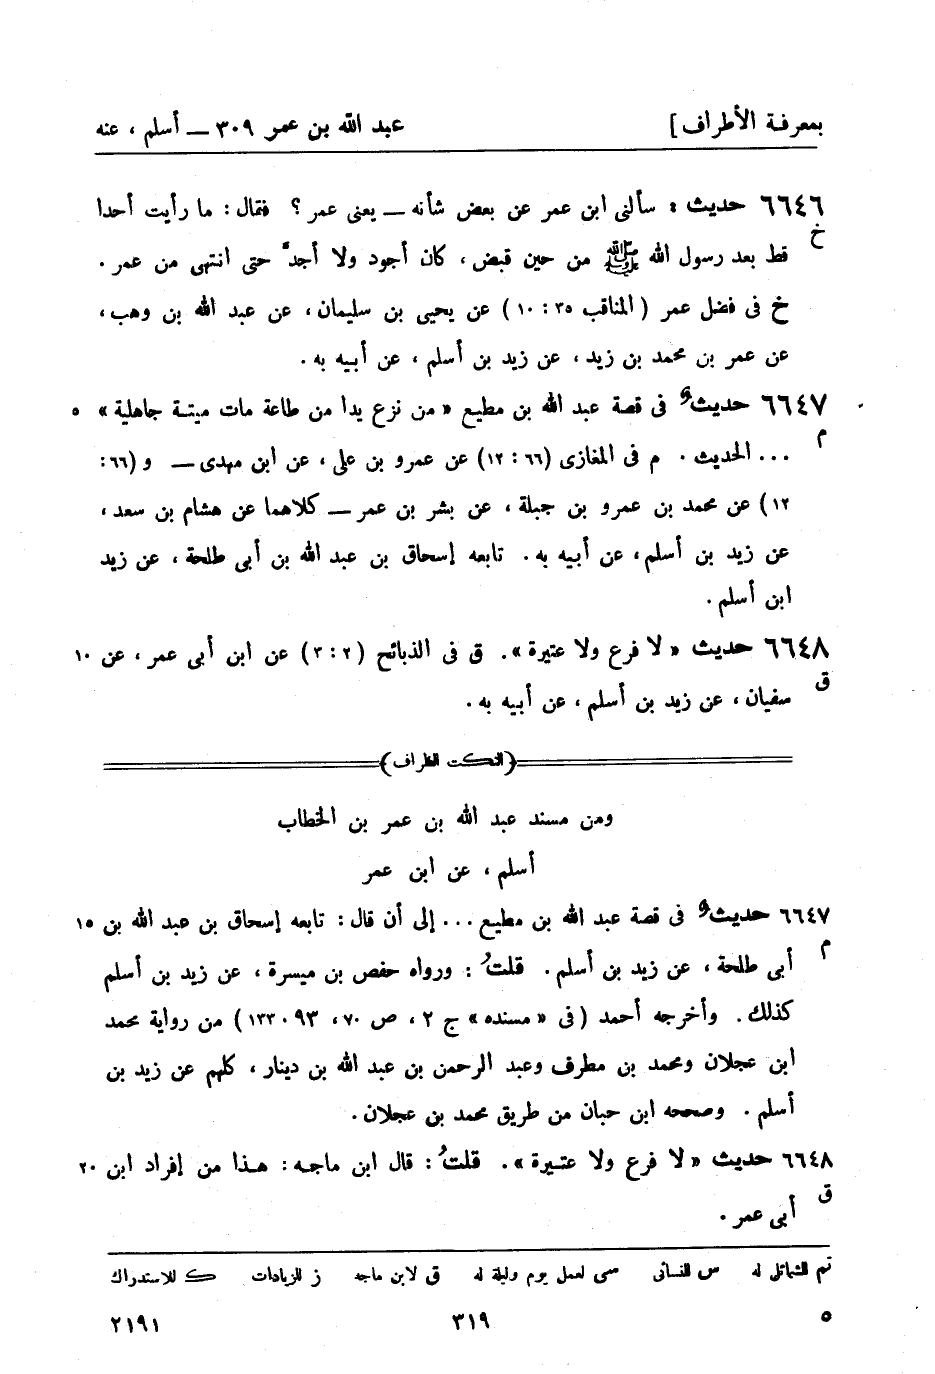 بمعرفة الأطراف] عبد الله بن عمر ٣٠٩ — أسلم ، عنه
٦٦٤٦ حديث : سألنى ابن عمر عن بعض شأنه — يعنى عمر ؟ فقال : ما رأيت أحدا
خ
قط بعد رسول الله ﷺ من حين قبض ، كان أجود ولا أجدَّ حتى انتهى من عمر .
خ فى فضل عمر ( المناقب ٣٥ : ١٠ ) عن يحيى بن سليمان ، عن عبد الله بن وهب ،
عن عمر بن محمد بن زيد ، عن زيد بن أسلم ، عن أبيه به .
٦٦٤٧ حديثٌ فى قصة عبد الله بن مطيع « من نزع يدا من طاعة مات ميتة جاهلية » ٥
م
... الحديث . م فى المغازى (٦٦ : ١٢) عن عمرو بن على ، عن ابن مهدى — و (٦٦ :
١٢) عن محمد بن عمرو بن جبلة ، عن بشر بن عمر — كلاهما عن هشام بن سعد ،
عن زيد بن أسلم ، عن أبيه به . تابعه إسحاق بن عبد الله بن أبى طلحة ، عن زيد
ابن أسلم .
٦٦٤٨ حديث « لا فرع ولا عتيرة » . ق فى الذبائح (٢ : ٣) عن ابن أبى عمر ، عن ١٠
ق
سفيان ، عن زيد بن أسلم ، عن أبيه به .
(النكت الظراف)
ومن مسند عبد الله بن عمر بن الخطاب
أسلم ، عن ابن عمر
٦٦٤٧ حديثٌ فى قصة عبد الله بن مطيع ... إلى أن قال : تابعه إسحاق بن عبد الله بن ١٥
م
أبى طلحة ، عن زيد بن أسلم . قلتُ : ورواه حفص بن ميسرة ، عن زيد بن أسلم
كذلك . وأخرجه أحمد (فى « مسنده » ج ٢ ، ص ٧٠ ، ٩٣ ، ١٣٣) من رواية محمد
ابن عجلان ومحمد بن مطرف وعبد الرحمن بن عبد الله بن دينار ، كلهم عن زيد بن
أسلم . وصححه ابن حبان من طريق محمد بن عجلان .
٦٦٤٨ حديث « لا فرع ولا عتيرة » . قلتُ : قال ابن ماجه : هذا من إفراد ابن ٢٠
ق
أبى عمر .
تم للشمائل له س للنسائى سى لعمل يوم وليلة له ق لابن ماجه ز للزيادات ك للاستدراك
٥ ٣١٩ ٢١٩١